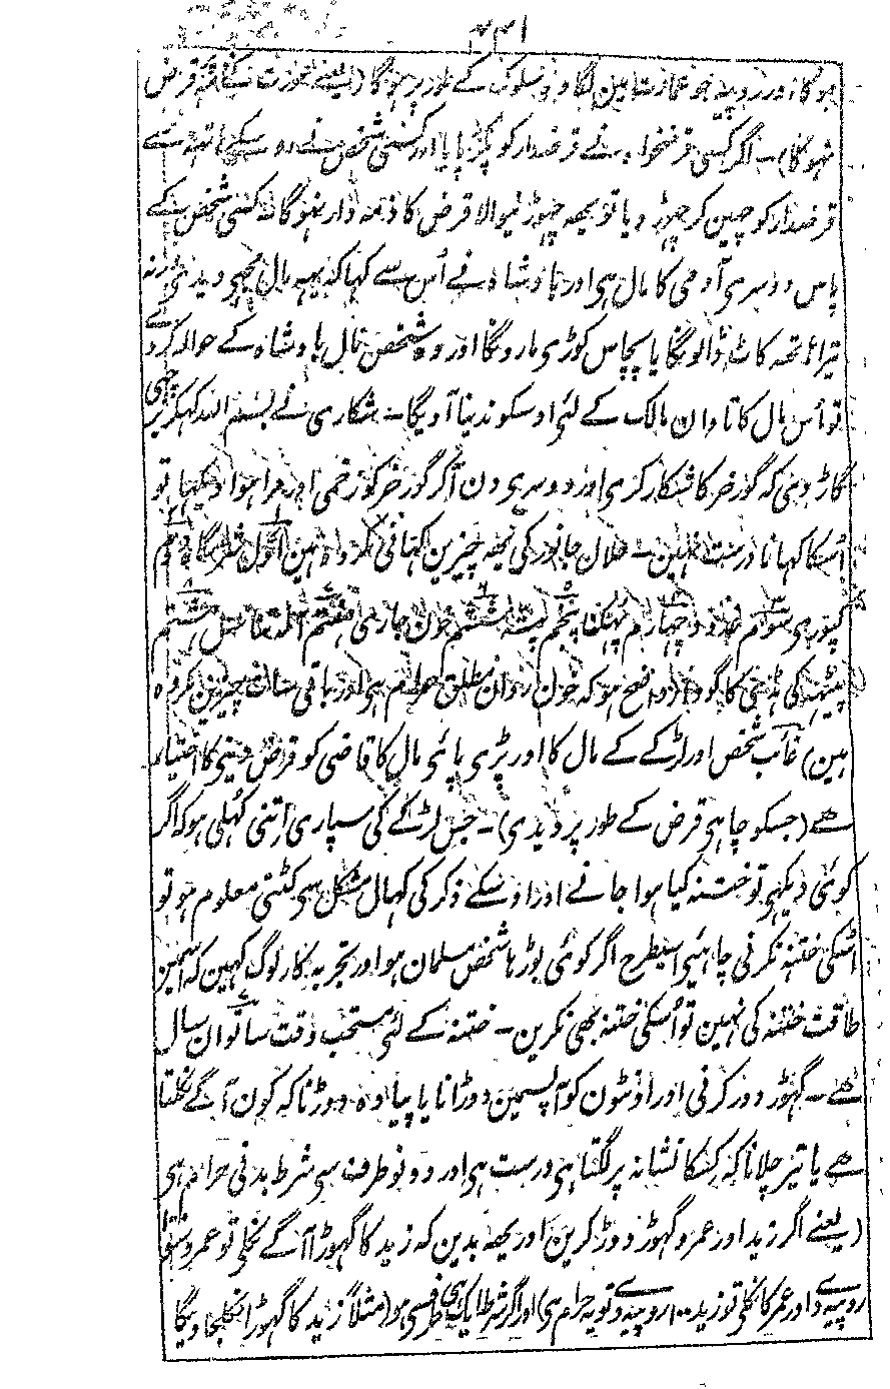 ۳۳۱
ہوگا اور روپیہ جو عمارت مین لگا وہ سلوک کے طور پر ہوگا (یعنے عورت کے ذمہ قرض
نہوگا) ۔ اگر کسی قرضخواہ نے قرضدار کو پکڑ پایا اور کسی شخص نے اوسکے ہاتھ سے
قرضدار کو چھین کر چھوڑ دیا تو یہہ چھوڑنیوالا قرض کا ذمہ دار نہوگا کسی شخص کے
پاس دوسری آدمی کا مال ہی اور بادشاہ نے اُس سے کہا کہ یہہ مال مجھی دیدی ورنہ
تیرا ہاتھہ کاٹ ڈالونگا یا پچاس کوڑی مارونگا اور وہ شخص مال بادشاہ کے حوالہ کردے
تو اُس مال کا تاوان مالک کے لئی اوسکو ندینا آویگا ۔ شکاری نے بسم اللہ کہکر برچھی
گاڑ دی کہ گورخر کا شکار کری اور دوسری دن آکر گورخر کو زخمی اور مرا ہوا دیکھا تو
اُسکا کھانا درست نہین ۔ حلال جانور کی یہہ چیزین کھانی مکروہ ہین اول شرمگاہ دوم
کپوری سوم غدود چہارم پھکنا پنجم پتہ ششم خون جاری ہفتم آلہ تناسل ہشتم
پیٹھہ کی ہڈی کا گودا (واضح ہو کہ خون روان مطلق حرام ہی اور باقی سات چیزین مکروہ
ہین) غائب شخص اور لڑکے کے مال کا اور پڑی پائی مال کا قاضی کو قرض دینی کا اختیار
ہے (جسکو چاہی قرض کے طور پر دیدی) ۔ جس لڑکے کی سپاری اتنی کھلی ہو کہ اگر
کوئی دیکھی تو ختنہ کیا ہوا جانے اور اوسکے ذکر کی کھال مشکل سی کٹتی معلوم ہو تو
اُسکی ختنہ نکرنی چاہئیی اسیطرح اگر کوئی بوڑھا شخص مسلمان ہو اور تجربہ کار لوگ کہین کہ اسمین
طاقت ختنہ کی نہین تو اُسکی ختنہ بھی نکرین ۔ ختنہ کے لئی مستحب وقت ساتوان سال
ہے ۔ گھوڑ دوڑ کرنی اور اونٹون کو آپسمین دوڑانا یا پیادہ دوڑنا کہ کون آگے نکلتا
ہے یا تیر چلانا کہ کسکا نشانہ پر لگتا ہی درست ہی اور دونو طرف سی شرط بدنی حرام ہی
(یعنے اگر زید اور عمرو گھوڑ دوڑ کرین اور یہہ بدین کہ زید کا گھوڑا آگے نکلی تو عمرو سو
روپیہ دے اور عمر کا نکلی تو زید ۱۰۰ روپیہ دے تو یہ حرام ہی) اور اگر شرط ایک ہی طرف سی ہو (مثلاً زید کا گھوڑا نکلجاویگا